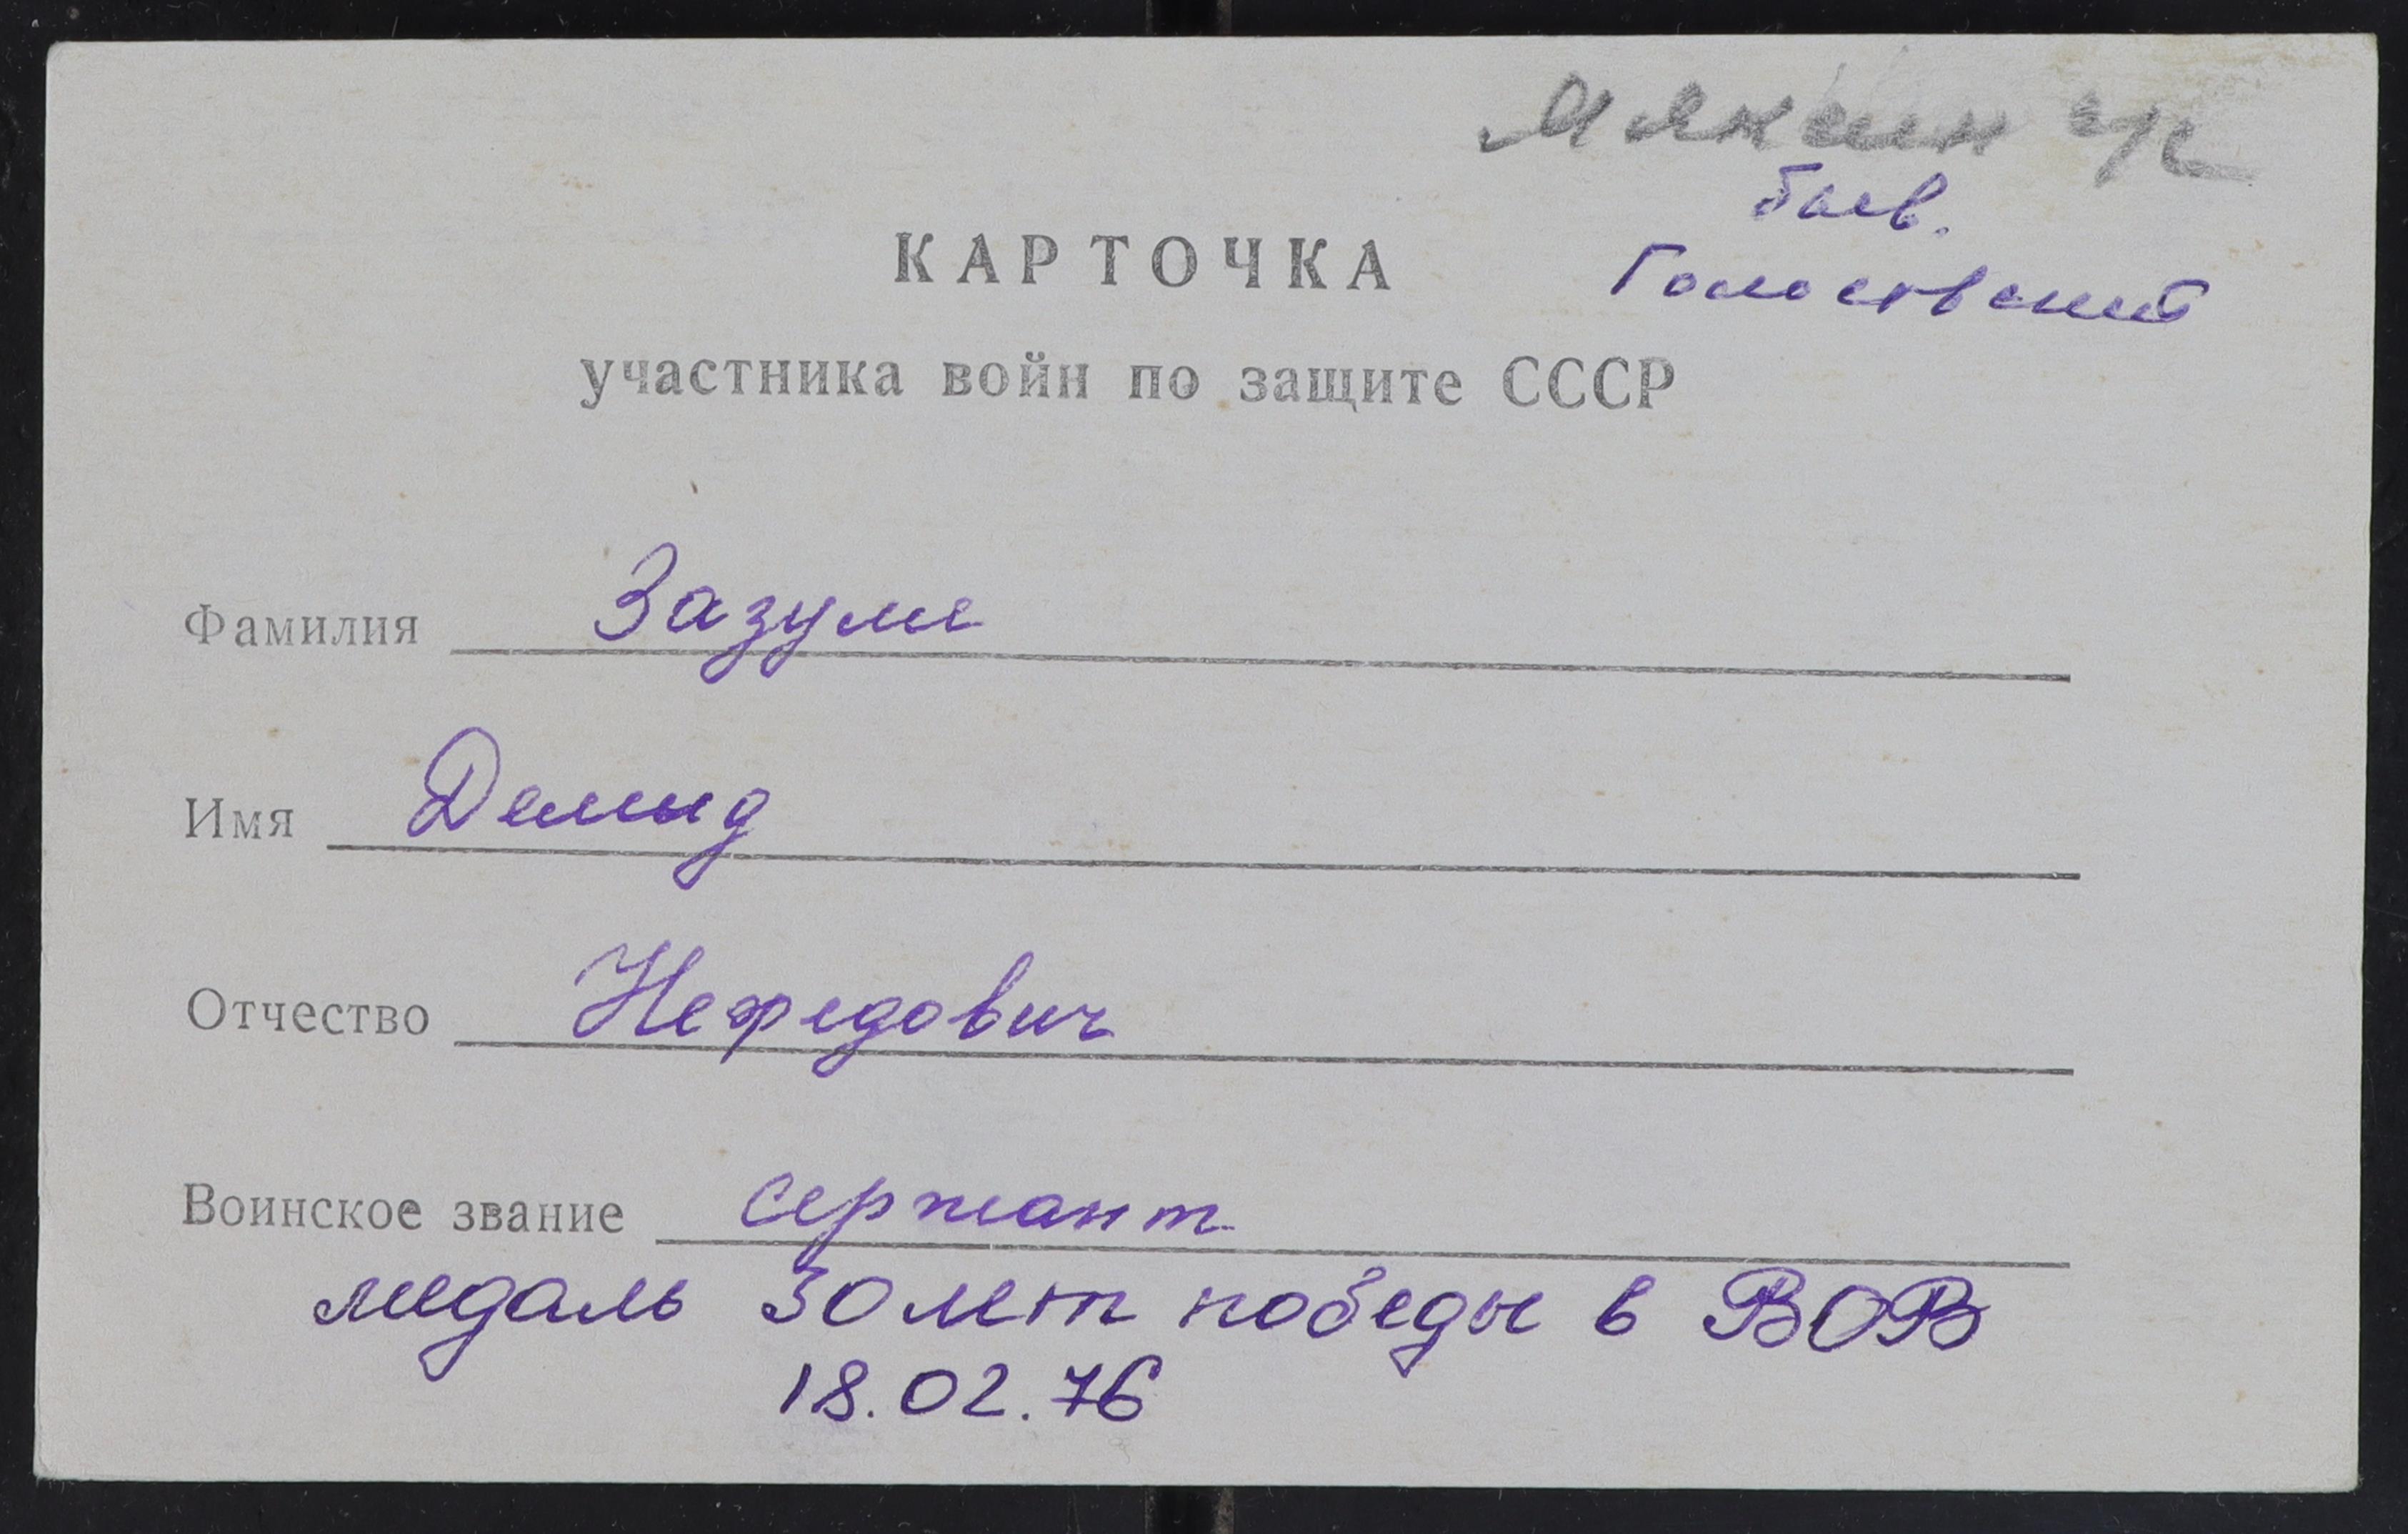 баев.
КАРТОЧКА
участника войн по защите СССР
Фамилия Зазуле
Имя Демид
Отчество Нефедович
Воинское звание сержант
медаль 30 лет победы в ВОВ
18.02.76